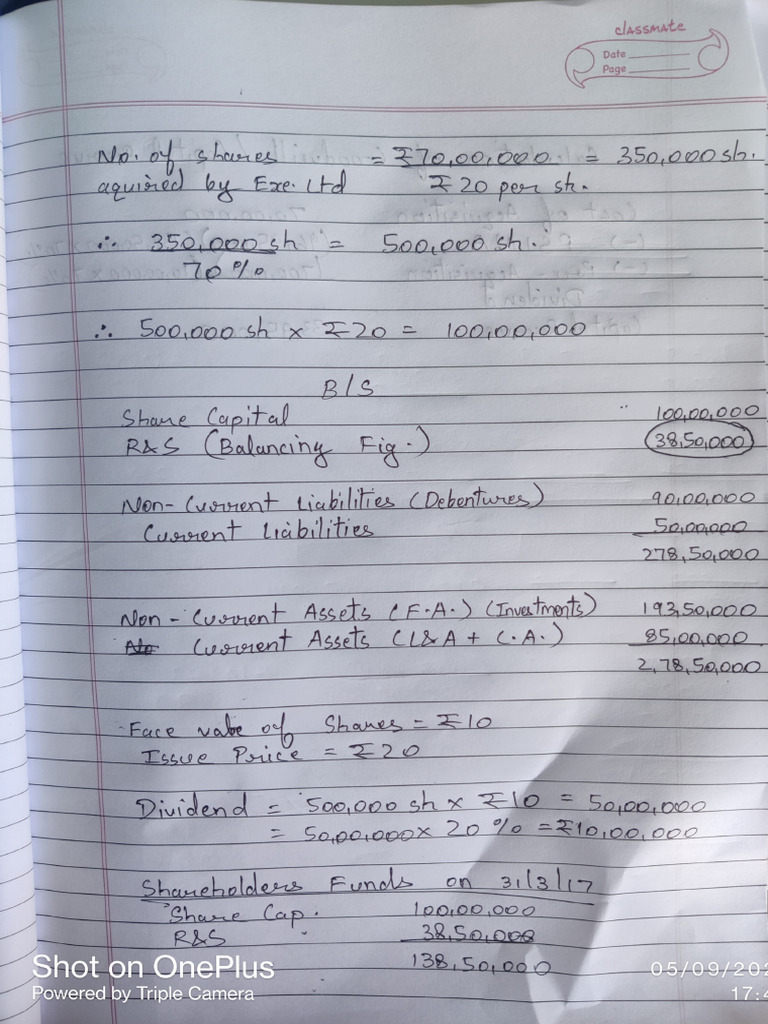 classmate
Date
Page
No. of shares = ₹70,00,000 = 350,000 sh.
aquired by Exe. Ltd ₹20 per sh.
∴ 350,000 sh = 500,000 sh.
70%
∴ 500,000 sh x ₹20 = 100,00,000
B/S
Share Capital 100,00,000
R&S (Balancing Fig.) 38,50,000
Non-Current Liabilities (Debentures) 90,00,000
Current Liabilities 50,00,000
278,50,000
Non-Current Assets (F.A.) (Investments) 193,50,000
Current Assets (L&A + C.A.) 85,00,000
2,78,50,000
Face value of Shares = ₹10
Issue Price = ₹20
Dividend = 500,000 sh x ₹10 = 50,00,000
= 50,00,000 x 20% = ₹10,00,000
Shareholders Funds on 31/3/17
Share Cap. 100,00,000
R&S 38,50,000
138,50,000
Shot on OnePlus
Powered by Triple Camera
05/09/202
17:4